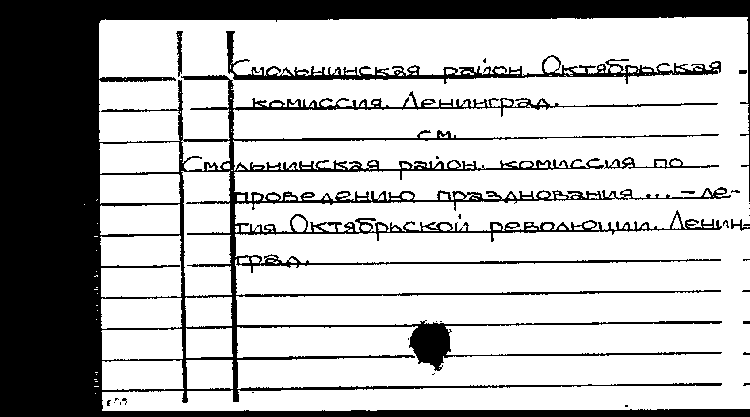 Смольнинская район. Октябрьская
комиссия. Ленинград.
см.
Смольнинская район. комиссия по
проведению празднования ... - ле-
тия Октябрьской революции. Ленин-
град.